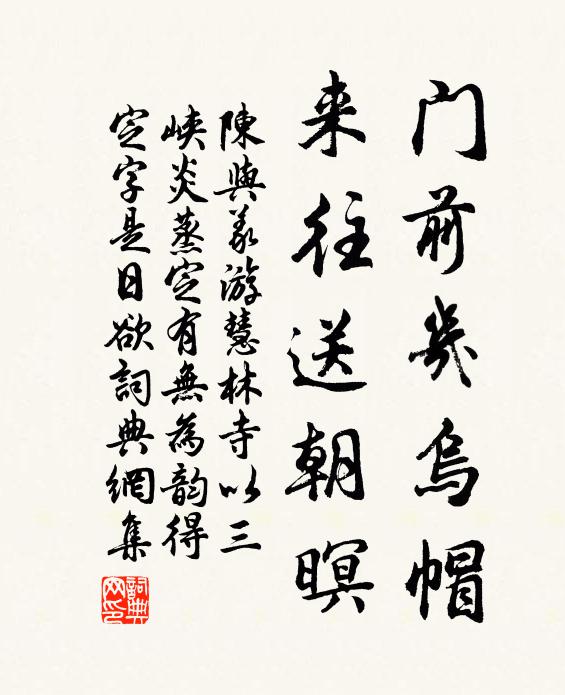 门前幾烏帽
来往送朝暝
陳與義游慧林寺以三
峽炎蒸定有無為韵得
定字是日欲詞典網集
詞典网印